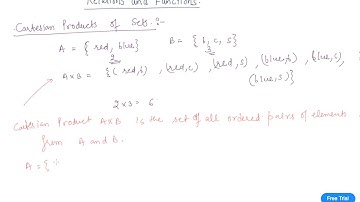 Relations and Functions.
Cartesian Products of Sets :-
A = { red, blue} B = { b, c, s}
2 3
A×B = {(red,b), (red,c), (red,s), (blue,b), (blue,c),
(blue,s)}
2×3= 6
Cartesian Product A×B is the set of all ordered pairs of elements
from A and B.
A = {
Free Trial